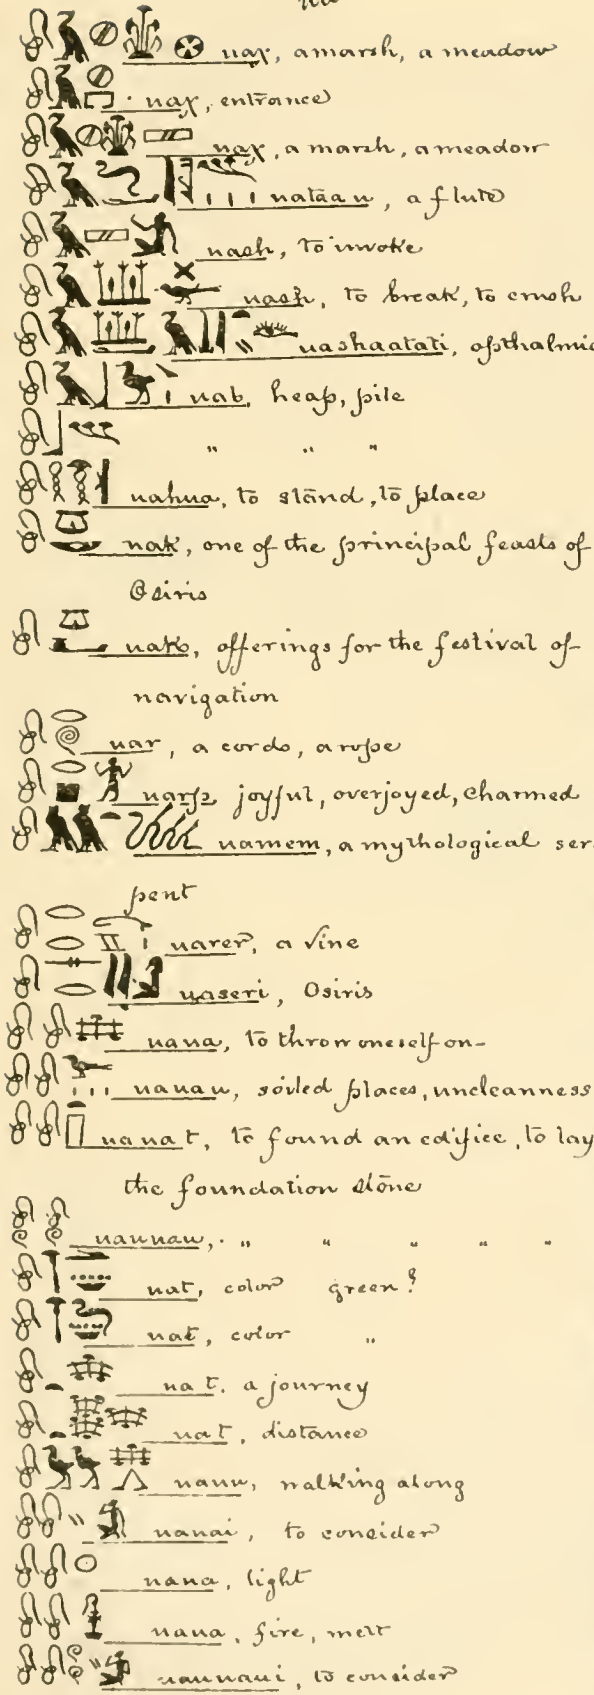 ua
uaχ, a marsh, a meadow
uaχ, entrance
uaχ, a marsh, a meadow
uatāau, a flute
uash, to invoke
uash, to break, to crush
uashaatati, opthalmic
uab, heap, pile
" " "
uahua, to stand, to place
uak, one of the principal feasts of
Osiris
uak, offerings for the festival of
navigation
uar, a cord, a rope
uarp, joyful, overjoyed, charmed
uamem, a mythological ser-
pent
uarer, a vine
uaseri, Osiris
uaua, to throw oneself on
uauau, soiled places, uncleanness
uauat, to found an edifice, to lay
the foundation stone
uauuau, " " " " "
uat, color green?
uat, color "
uat, a journey
uat, distance
uauu, walking along
uauai, to consider
uaua, light
uaua, fire, melt
uauuaui, to consider